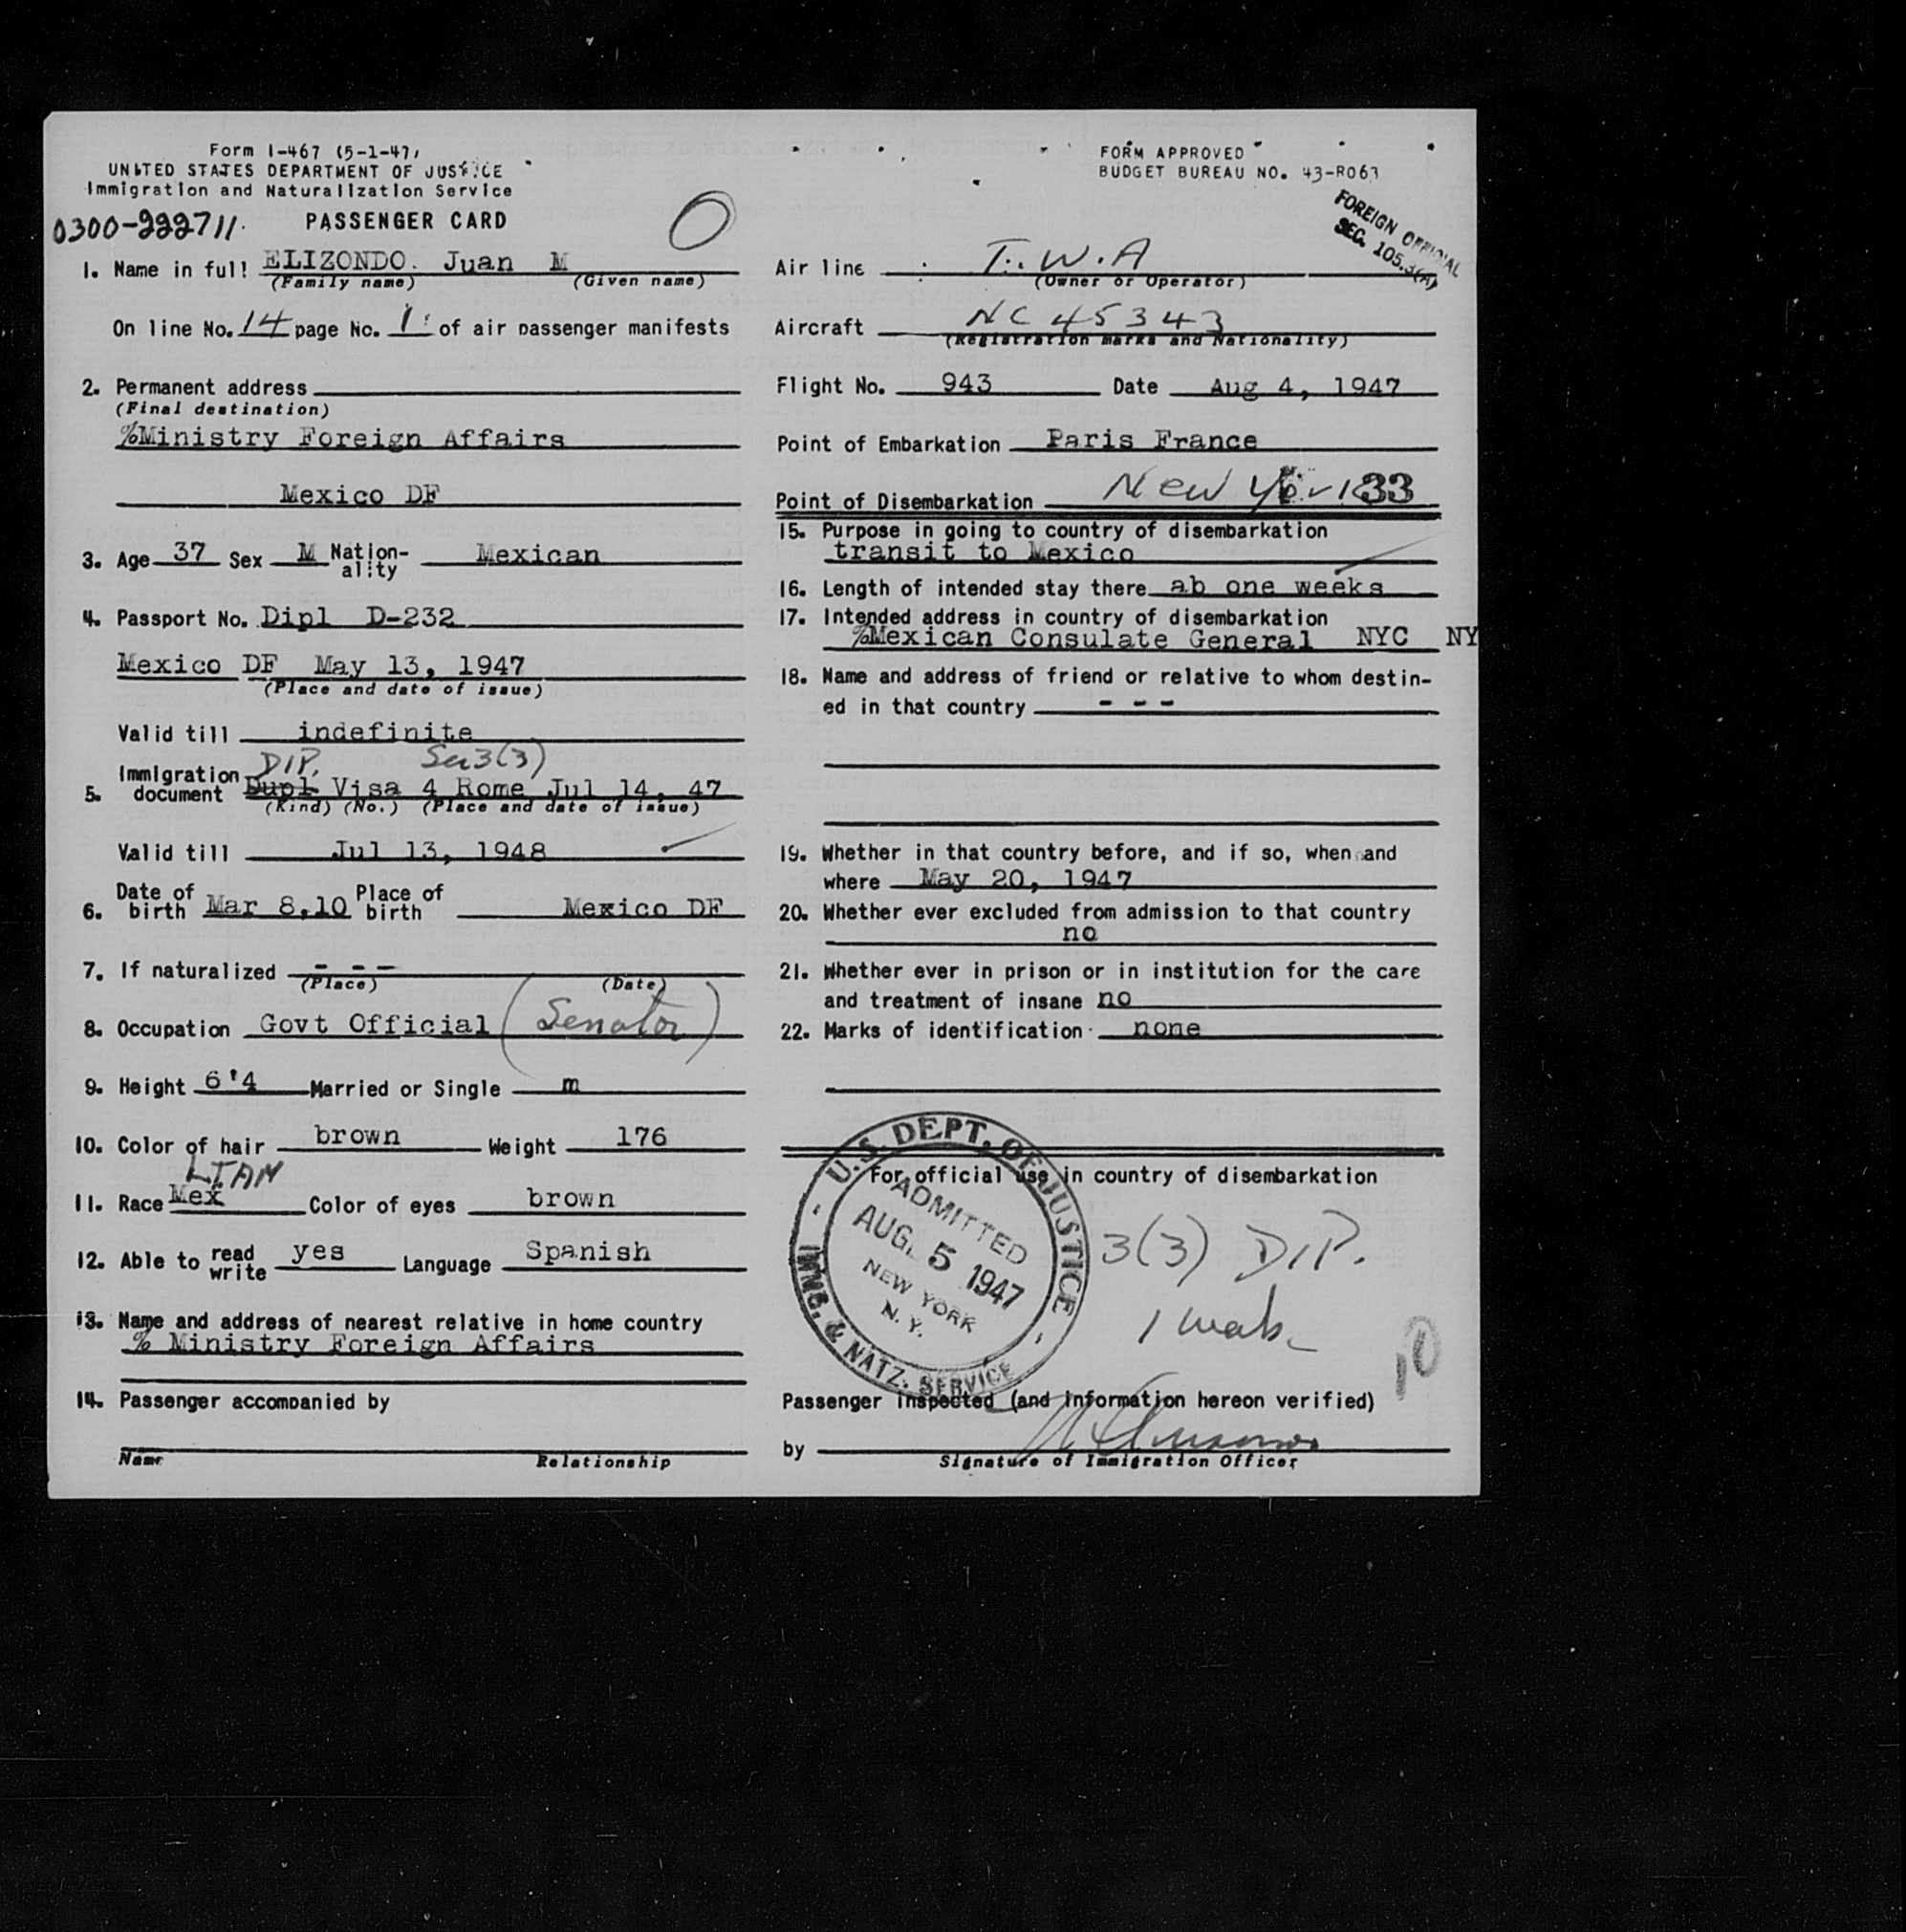 Form I-467 (5-1-47)
UNITED STATES DEPARTMENT OF JUSTICE
Immigration and Naturalization Service
0300-222711. PASSENGER CARD
O
1. Name in full ELIZONDO. Juan M
(Family name) (Given name)
On line No. 14 page No. 1 of air passenger manifests
2. Permanent address
(Final destination)
%Ministry Foreign Affairs
Mexico DF
3. Age 37 Sex M Nation-
ality Mexican
4. Passport No. Dipl D-232
Mexico DF May 13, 1947
(Place and date of issue)
Valid till indefinite
DIP. Sec 3(3)
5. Immigration
document Dupl Visa 4 Rome Jul 14, 47
(Kind) (No.) (Place and date of issue)
Valid till Jul 13, 1948
6. Date of
birth Mar 8,10 Place of
birth Mexico DF
7. If naturalized - - -
(Place) (Date)
8. Occupation Govt Official (Senator)
9. Height 6'4 Married or Single m
10. Color of hair brown Weight 176
LIAN
11. Race Mex Color of eyes brown
12. Able to read
write yes Language Spanish
13. Name and address of nearest relative in home country
% Ministry Foreign Affairs
14. Passenger accompanied by
Name Relationship
FORM APPROVED
BUDGET BUREAU NO. 43-R063
FOREIGN OFFICIAL
SEC. 105.3(A)
Air line T.W.A
(Owner or Operator)
Aircraft NC 45343
(Registration marks and Nationality)
Flight No. 943 Date Aug 4, 1947
Point of Embarkation Paris France
Point of Disembarkation New York 33
15. Purpose in going to country of disembarkation
transit to Mexico
16. Length of intended stay there ab one weeks
17. Intended address in country of disembarkation
%Mexican Consulate General NYC NY
18. Name and address of friend or relative to whom destin-
ed in that country - - -
19. Whether in that country before, and if so, when and
where May 20, 1947
20. Whether ever excluded from admission to that country
no
21. Whether ever in prison or in institution for the care
and treatment of insane no
22. Marks of identification none
For official use in country of disembarkation
U.S. DEPT. OF JUSTICE
IMMG. & NATZ. SERVICE
ADMITTED
AUG. 5 1947
NEW YORK
N. Y.
3(3) DIP.
1 week
10
Passenger inspected (and information hereon verified)
by
Signature of Immigration Officer